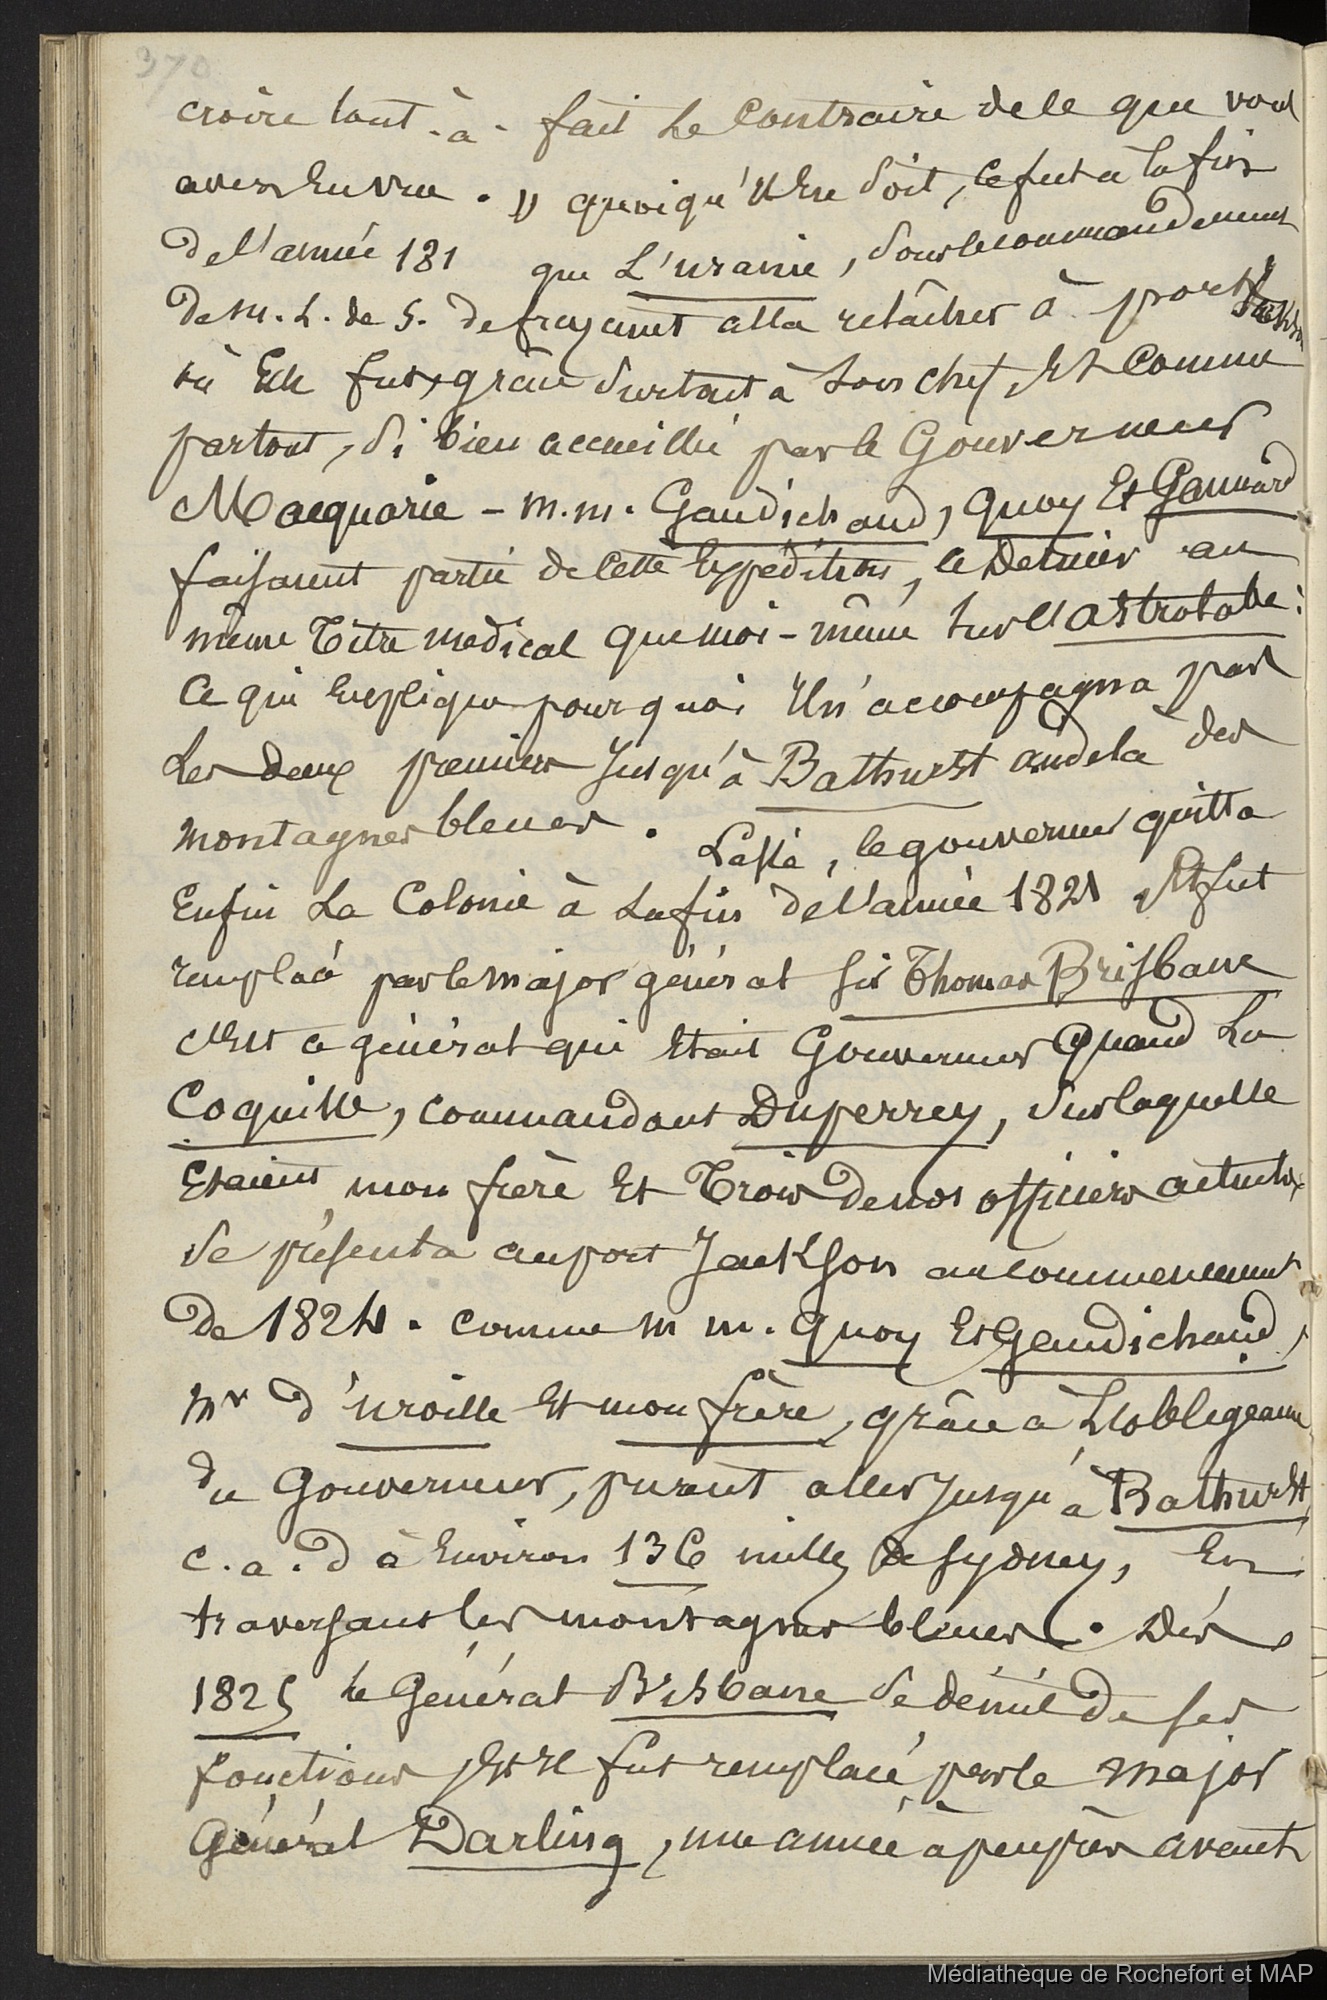 370
croire tout-à-fait le contraire de ce que vous
avez en vue. » quoiqu'il en soit, ce fut à la fin
de l'année 181 que L'uranie, sous le commandement
de m. L. de S. de freycinet alla relâcher à port Jackson
où Elle fut, grâce surtout à son chef, Et comme
partout, si bien accueillie par le Gouverneur
Macquarie - m.m. Gaudichaud, Quoy Et Gaimard
faisaient partie de Cette Expédition, le Dernier au
même Titre medical que moi-même sur l'astrolabe:
Ce qui Explique pourquoi Il n'accompagna pas
les deux premiers jusqu'à Bathurst au dela des
montagnes bleues. Lassé, le gouverneur quitta
Enfin la Colonie à la fin de l'année 1821 Et fut
remplacé par le major général sir Thomas Brisbane
c'est ce général qui Etait Gouverneur Quand la
Coquille, commandant Duperrey, sur laquelle
Etaient mon frère Et Trois de nos officiers actuels,
se présenta au port Jackson au commencement
de 1824. comme m m. Quoy Et Gaudichaud,
mr d'urville Et mon frère, grâce à L'obligeance
du Gouverneur, purent aller jusqu'à Bathurst,
c. a. d à Environ 136 milles de Sydney, En
traversant les montagnes bleues. Dès
1825 le Général Brisbane se démit de ses
fonctions, Et Il fut remplacé par le major
Général Darling, une année à peu près avant
Médiathèque de Rochefort et MAP